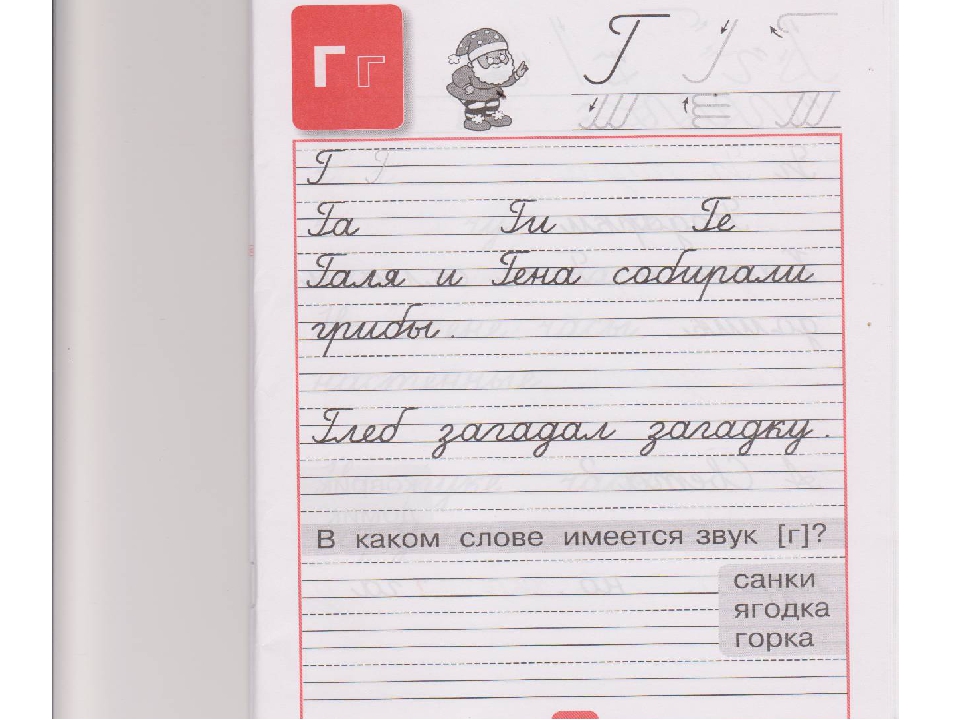 Г г
Г
Г Г
Га Ги Ге
Галя и Гена собирали
грибы.
Глеб загадал загадку.
В каком слове имеется звук [г]?
санки
ягодка
горка